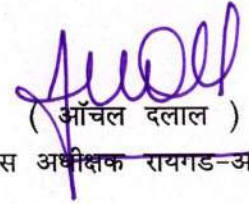 ( आँचल दलाल )
स अधीक्षक रायगड-अ